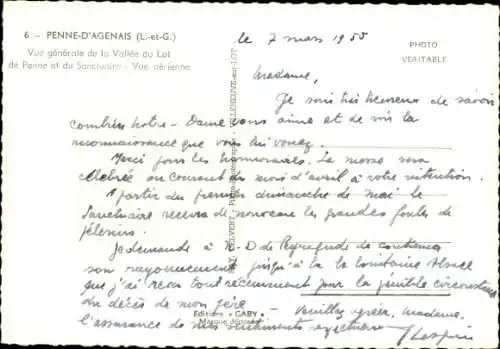 6 - PENNE-D'AGENAIS (L.-et-G.)
Vue générale de la Vallée du Lot
de Penne et du Sanctuaire - Vue aérienne
PHOTO
VÉRITABLE
le 7 mars 1955
Madame,
Je suis très heureux de savoir
combien Notre-Dame vous aime et de voir la
reconnaissance que vous lui vouez.
Merci pour les honoraires. La messe sera
célébrée au courant du mois d'avril à votre intention.
A partir du premier dimanche de mai le
Sanctuaire recevra de nouveau les grandes foules de
pèlerins.
Je demande à N-D de Peyragude de
son rayonnement jusqu'à la lointaine Alsace
que j'ai revu tout récemment pour la pénible circonstance
du décès de mon père - Veuillez agréer, Madame,
l'assurance de mes sentiments
Editions "GABY"
Marque déposée
VILLENEUVE-sur-LOT